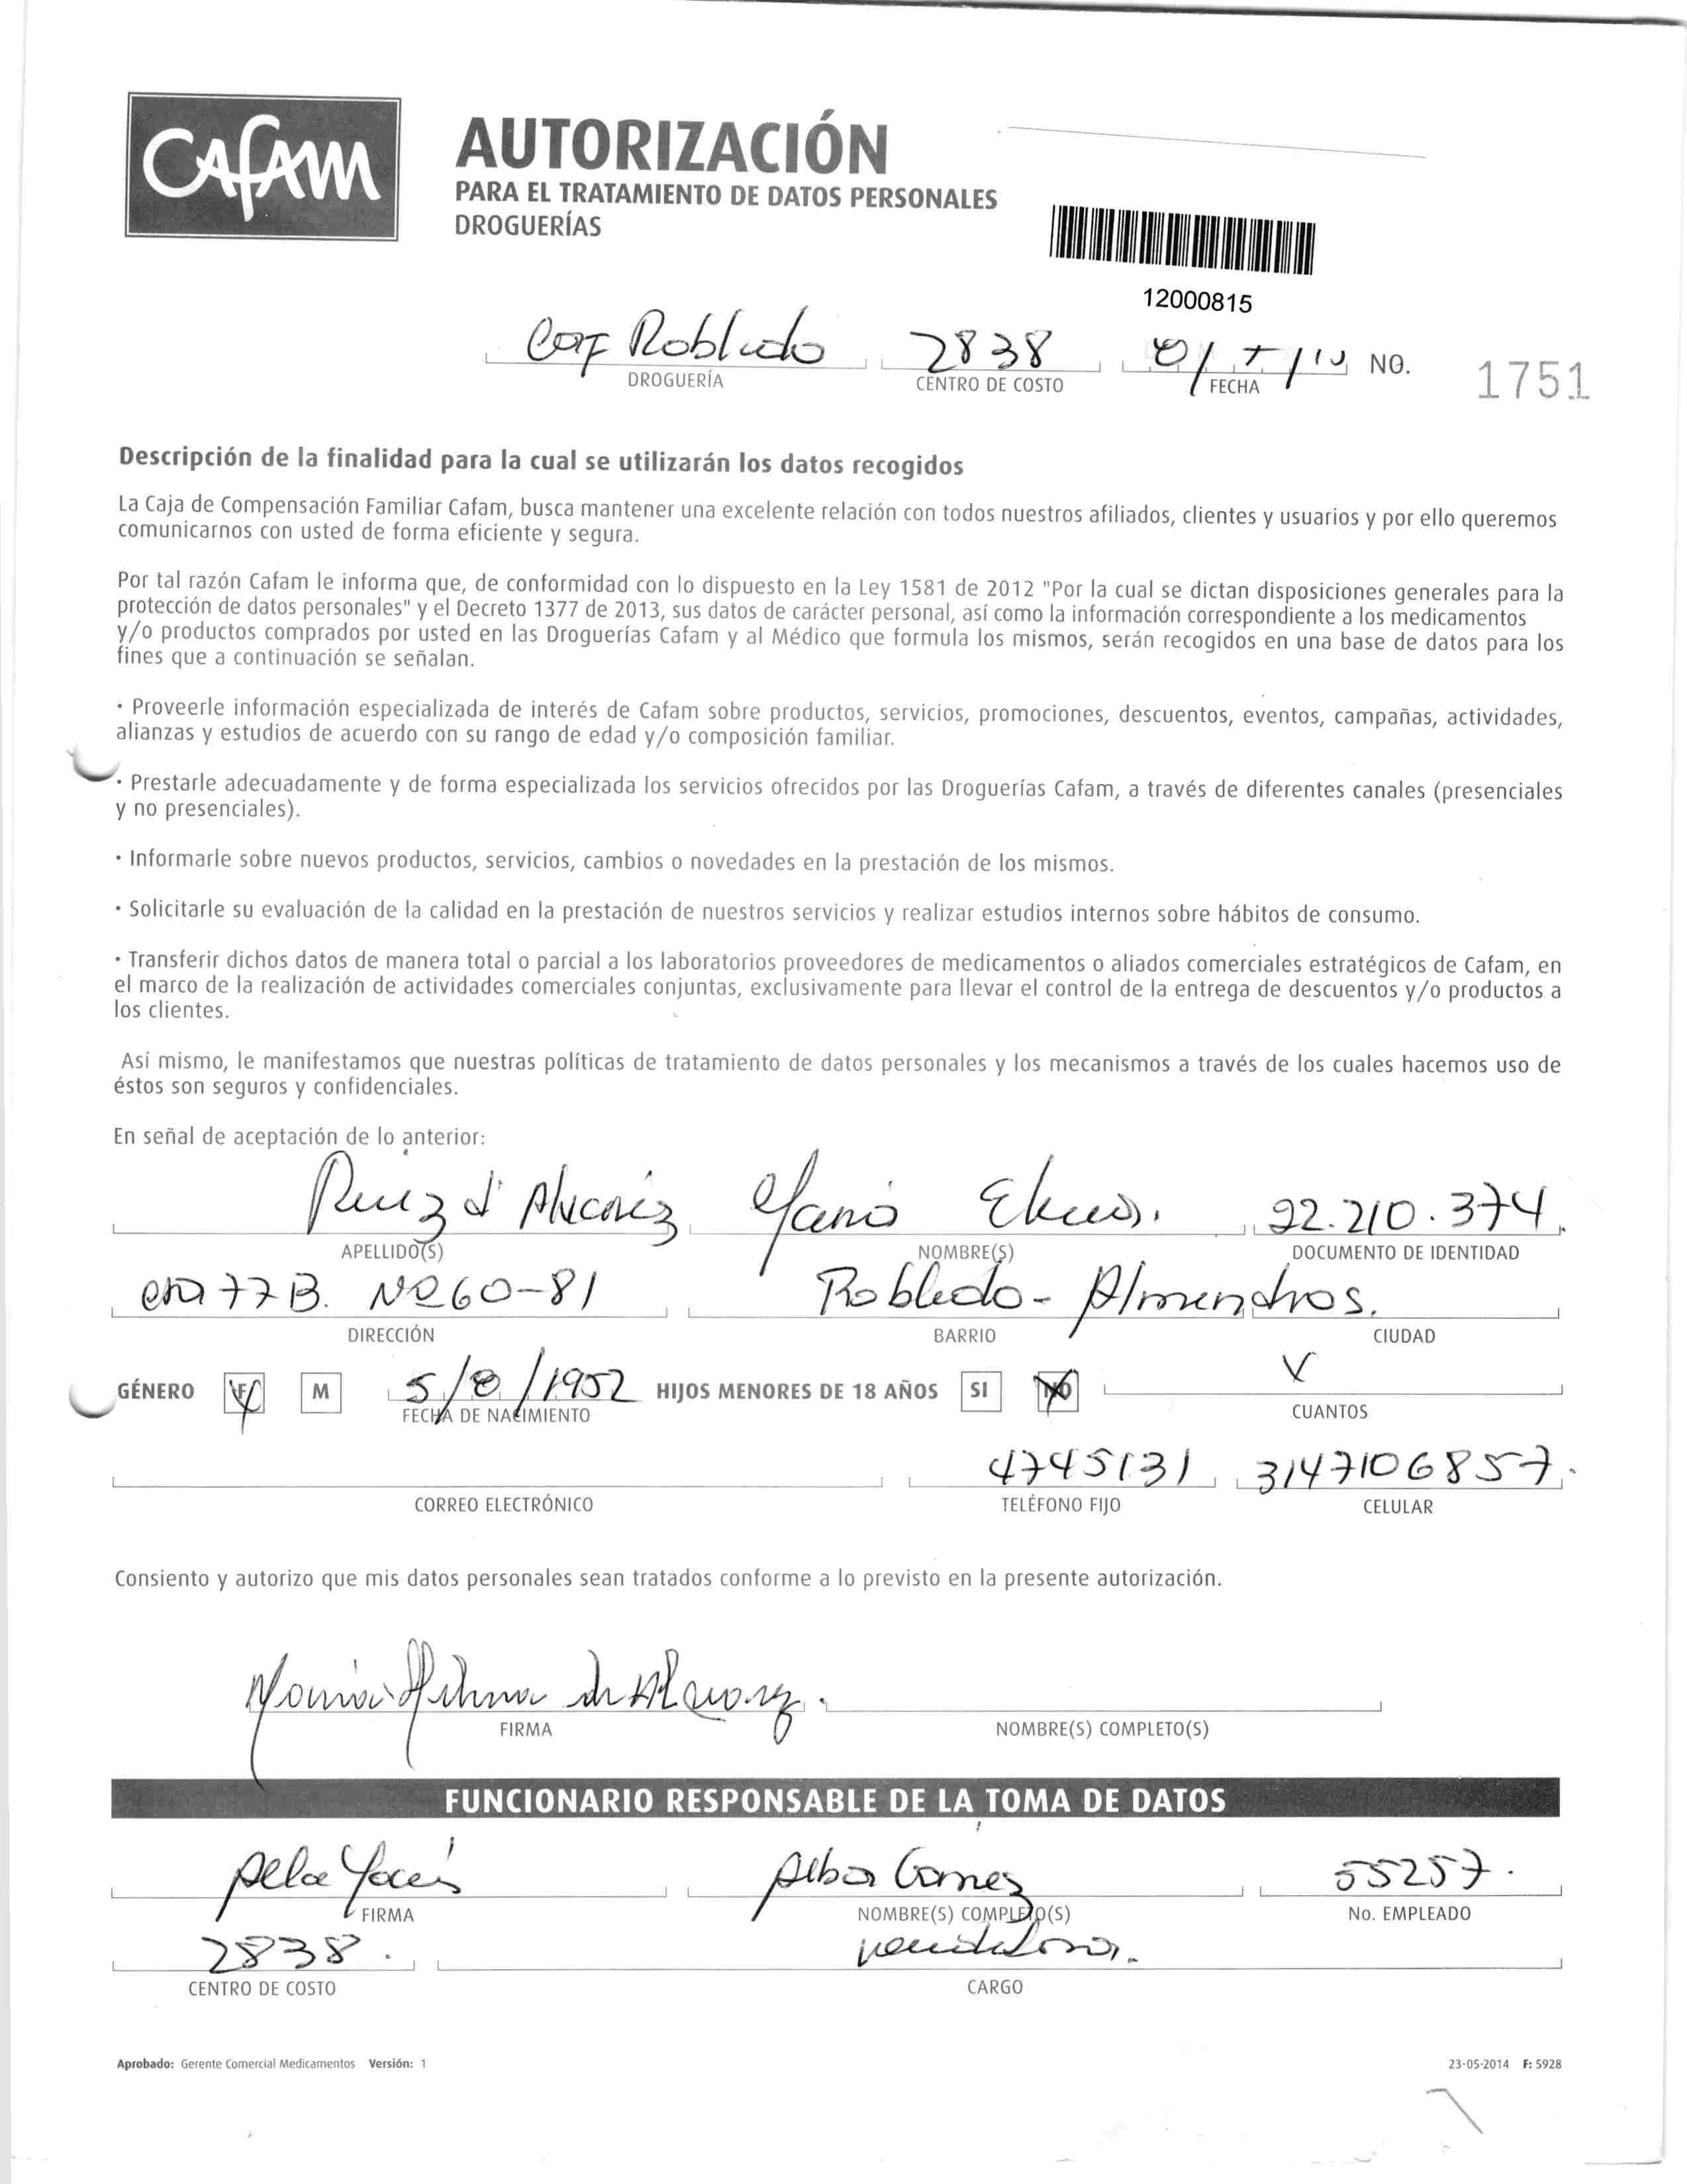 CAfAM
AUTORIZACIÓN
PARA EL TRATAMIENTO DE DATOS PERSONALES
DROGUERÍAS
12000815
Robledo 2838 NO. 1751
DROGUERÍA CENTRO DE COSTO FECHA
Descripción de la finalidad para la cual se utilizarán los datos recogidos
La Caja de Compensación Familiar Cafam, busca mantener una excelente relación con todos nuestros afiliados, clientes y usuarios y por ello queremos
comunicarnos con usted de forma eficiente y segura.
Por tal razón Cafam le informa que, de conformidad con lo dispuesto en la Ley 1581 de 2012 "Por la cual se dictan disposiciones generales para la
protección de datos personales" y el Decreto 1377 de 2013, sus datos de carácter personal, así como la información correspondiente a los medicamentos
y/o productos comprados por usted en las Droguerías Cafam y al Médico que formula los mismos, serán recogidos en una base de datos para los
fines que a continuación se señalan.
· Proveerle información especializada de interés de Cafam sobre productos, servicios, promociones, descuentos, eventos, campañas, actividades,
alianzas y estudios de acuerdo con su rango de edad y/o composición familiar.
· Prestarle adecuadamente y de forma especializada los servicios ofrecidos por las Droguerías Cafam, a través de diferentes canales (presenciales
y no presenciales).
· Informarle sobre nuevos productos, servicios, cambios o novedades en la prestación de los mismos.
· Solicitarle su evaluación de la calidad en la prestación de nuestros servicios y realizar estudios internos sobre hábitos de consumo.
· Transferir dichos datos de manera total o parcial a los laboratorios proveedores de medicamentos o aliados comerciales estratégicos de Cafam, en
el marco de la realización de actividades comerciales conjuntas, exclusivamente para llevar el control de la entrega de descuentos y/o productos a
los clientes.
Así mismo, le manifestamos que nuestras políticas de tratamiento de datos personales y los mecanismos a través de los cuales hacemos uso de
éstos son seguros y confidenciales.
En señal de aceptación de lo anterior:
Ruiz d' Alvarez Maria 22.210.374
APELLIDO(S) NOMBRE(S) DOCUMENTO DE IDENTIDAD
cra 77B. Nº 60-81 Robledo - Almendros.
DIRECCIÓN BARRIO CIUDAD
GÉNERO F M 5/8/1952 HIJOS MENORES DE 18 AÑOS SI NO
FECHA DE NACIMIENTO CUANTOS
4745131 3147106857.
CORREO ELECTRÓNICO TELÉFONO FIJO CELULAR
Consiento y autorizo que mis datos personales sean tratados conforme a lo previsto en la presente autorización.
Maria de Alvarez.
FIRMA NOMBRE(S) COMPLETO(S)
FUNCIONARIO RESPONSABLE DE LA TOMA DE DATOS
Alba Gomez 55257.
FIRMA NOMBRE(S) COMPLETO(S) No. EMPLEADO
2838. vendedora.
CENTRO DE COSTO CARGO
Aprobado: Gerente Comercial Medicamentos Versión: 1 23-05-2014 F: 5928